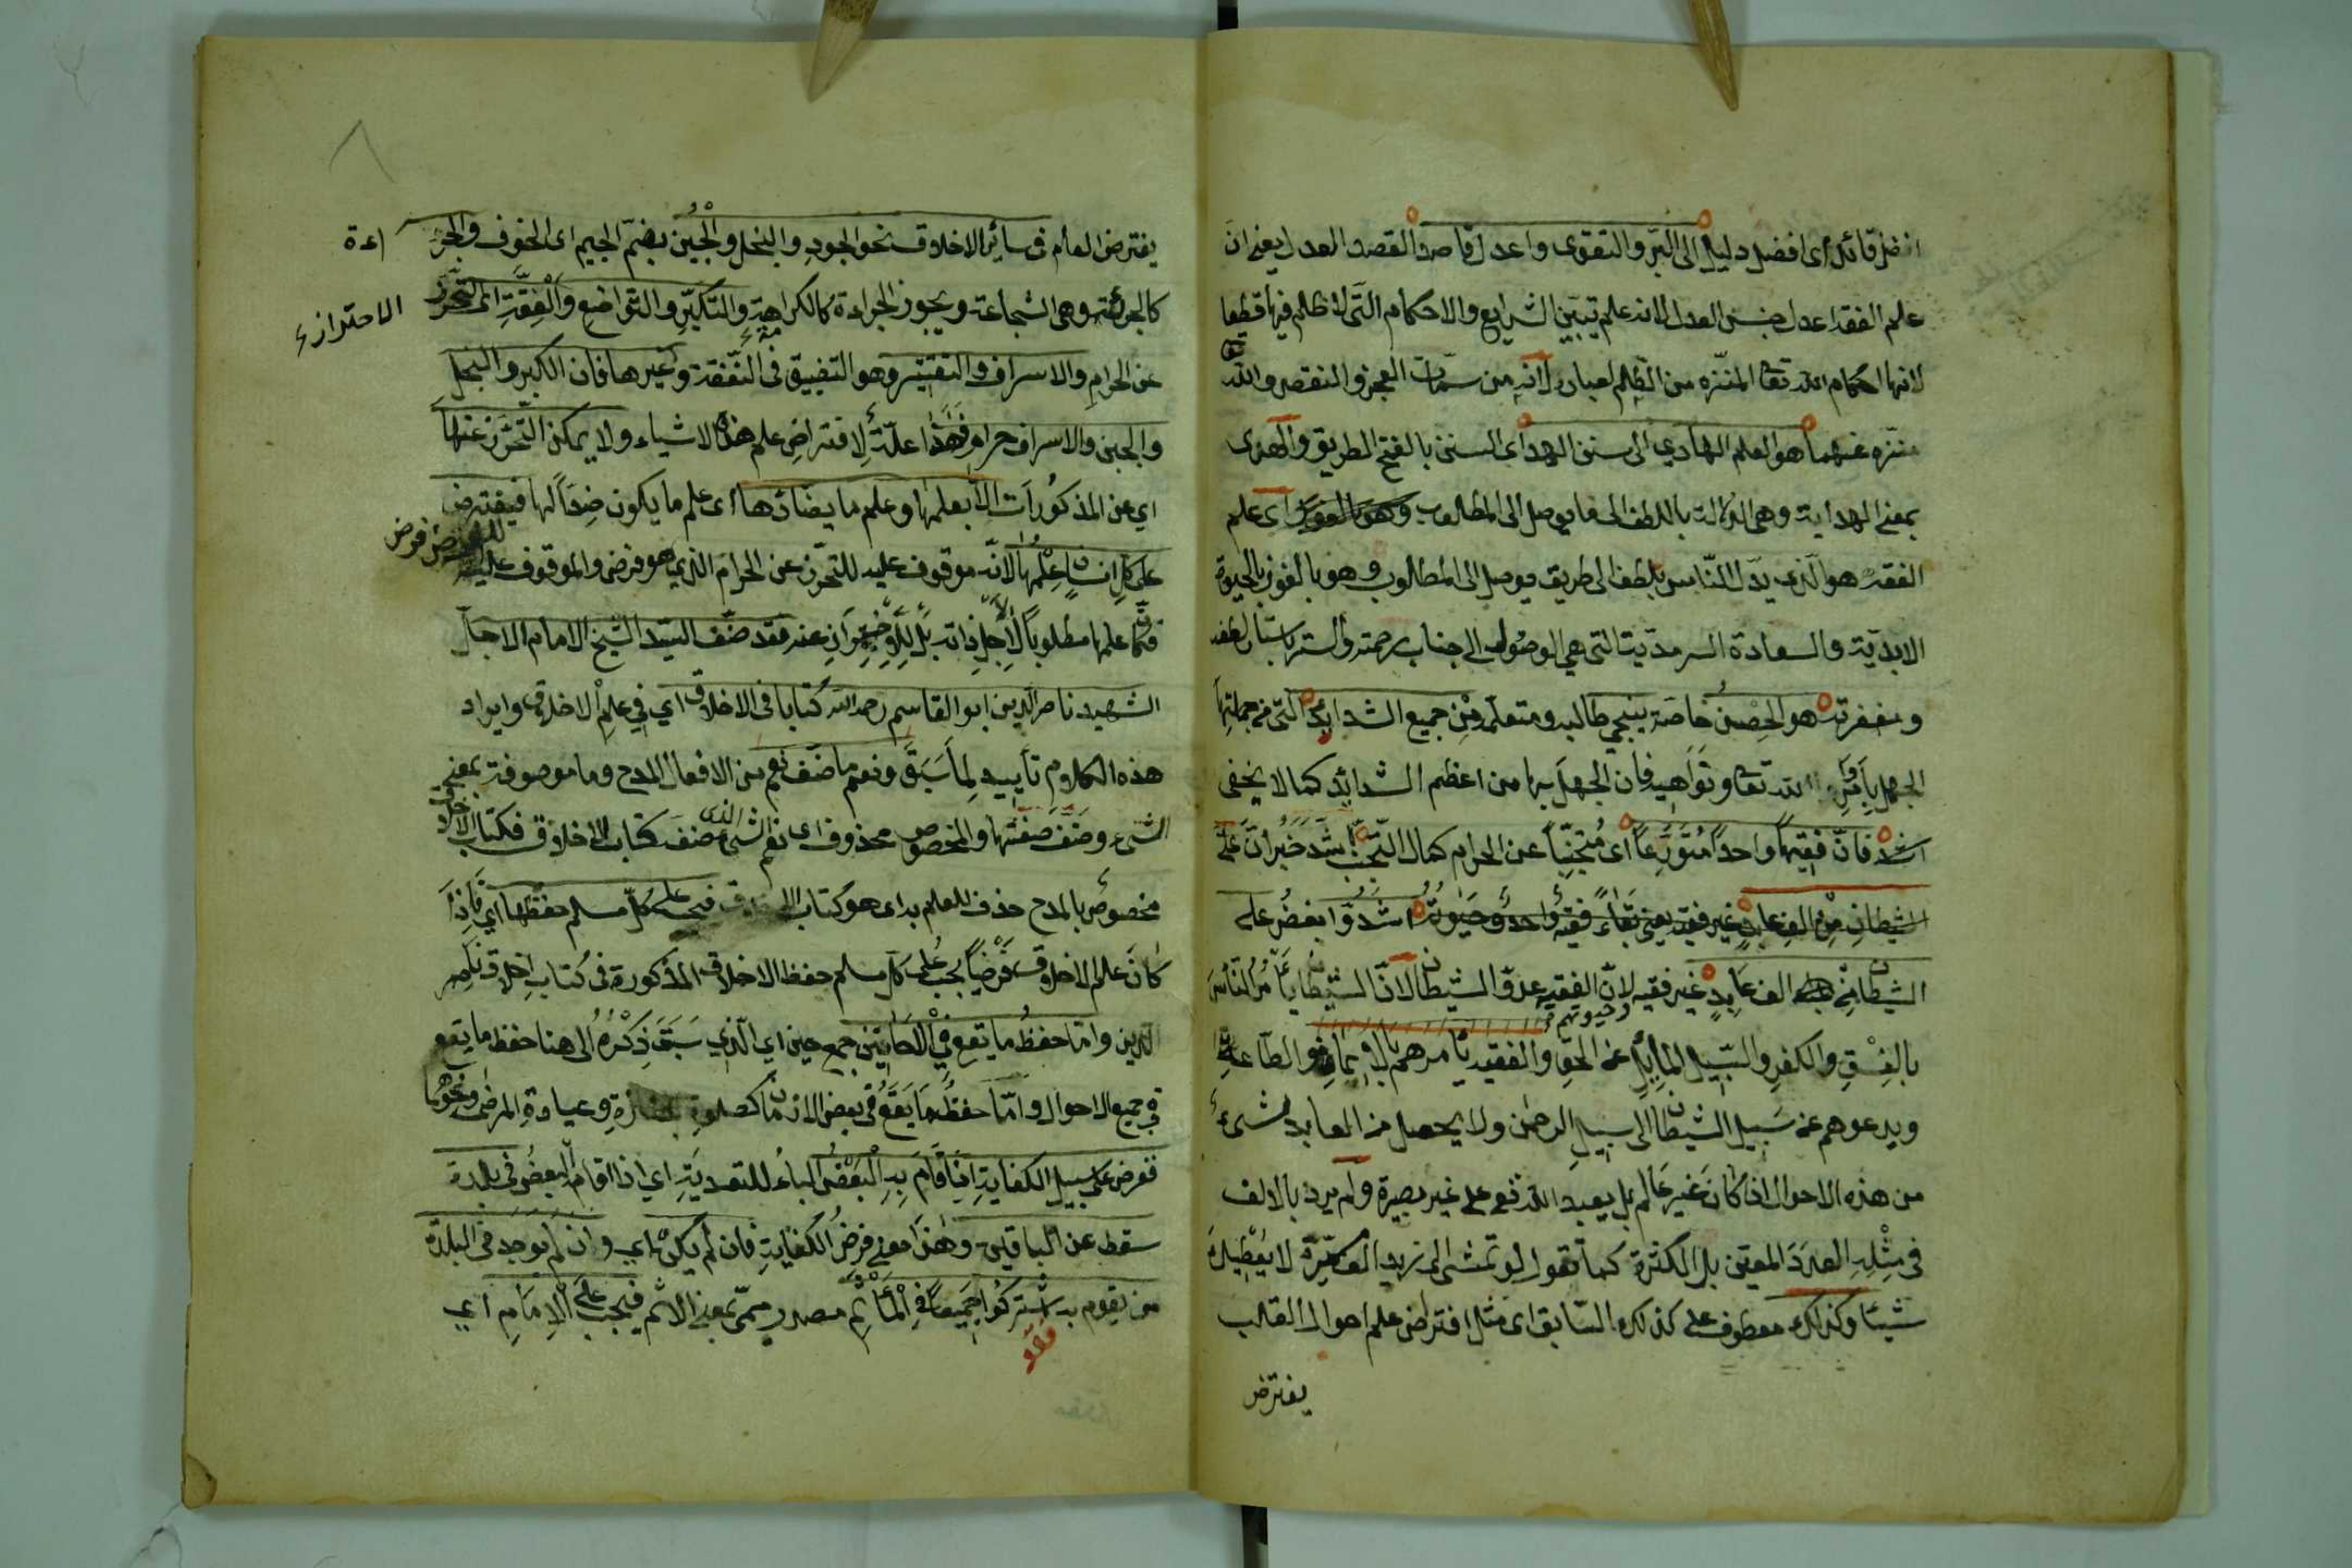 افضل قائد اى افضل دليل الى البرّ والتقوى واعدل قاصد القصد العدل يعنى ان
علم الفقه اعدل جنس العدل لانه علم تبيّن الشرايع والاحكام التى لا ظلم فيها قطعا
لانها احكام الله تعا المنزّه من الظلم لعباده لانه من سمات العجز والنقص والله تعا
منزه عنهما هو العلم الهادي الى سنن الهدى اى السنن بالفتح الطريق والهدى
بمعنى الهداية وهى الدلالة باللطف الى ما يوصل الى المطلوب اى علم
الفقه هو الذى يدل الناس بلطف الى طريق يوصل الى المطلوب وهو بالفوز بالحيوة
الابديّة والسعادة السرمديّة التى هي الوصول الى جناب رحمته والستر باستار لطفه
ومغفرته هو الحِصْنُ خاصّة ينجي طالبه ومتعلّمه مِن جميع الشدايد التى من جملتها
الجهل بِاَوامرِ الله تعا ونواهيه فان الجهل بها من اعظم الشدائد كما لا يخفى
اشد فانّ فقيها واحدا مُتَوَرِّعاً اى مُتجنِّباً عن الحرام كمال التجنّب اشدّ خبر انّ على
الشيطانِ مِنْ الفِ عابدٍ غير فقيه يعنى بقاءُ فقيهٍ واحدٍ وحيوتُه اشدّ وابغضُ على
الشيطان مِن الف عَابِدٍ غير فقيه لانّ الفقيه عدوّ الشيطان لانّ الشيطان يأمُر الناسَ
وحيوتهم
بالفِسْقِ والكفرِ والسّبيل المايل عن الحقّ والفقيه يأمرهم بالايمانِ والطّاعةِ
ويدعوهم عن سَبيل الشيطان الى سبيلِ الرحمٰن ولا يحصل من العابد شئ
من هذه الاحوال اذا كان غير عَالم بل يعبد الله تع على غير بصيرة ولم يرد بالالف
فى مِثْلِهِ العدَدَ المعيّن بل الكثرة كما تقول لو تمشى الى زيد الف مرّة لا يُعْطِيكَ
شيئا وكذلك معطوف على كذلك السّابق اى مثل افتراض علم احوال القلب
يفترض
يفترض العلم فى سائر الاخلاق نحو الجود والبخل والجُبْن بضمّ الجيم اى الخوف والجرـ اءة
كالجرئة وهى الشجاعة ويجوز الجراءة كالكراهة والتكبّر والتواضع والعِفّة اى التحرّز
الاحتراز
عن الحرام والاسراف والتقتير وهو التضييق فى النّفقة وغيرها فان الكبر والبخل
والجبن والاسراف حرام فَهٰذا علّةٌ لافتراض علم هذه الاشياء ولا يمكن التّحرّز عنها
اي عن المذكورات الّا بعلمها وعلم ما يضادّها اى علم ما يكون ضِدّاً لها فيفترض
على كل انسان عِلْمُها لانّه موقوف عليه للتحرّز عن الحرام الذي هو فرض والموقوف عليه
للفرض فرض
فكان علمها مطلوباً لا لِاَجلِ ذاته بل لِلاِحْتِرازِ عنه وقد صنّف السيّد الشيخ الامام الاجلّ
الشهيد ناصر الدين ابو القاسم رحمه الله كتابا فى الاخلاق اي في علم الاخلاق وايراد
هذه الكلام تأييد لِما سَبَقَ ونعم ما صنّف نعم من الافعال المدح وما موصوفة بمعنى
الشئ وصَنَّفَ صفتها والمخصوص محذوف اى نعم الشئ الذى صنفَ كتاب الاخلاق فكتاب الاخلاق
مخصوص بالمدح حذف للعلم به اى هو كتاب الاخلاق فيجب على كلّ مسلم حفظها اي فَاِذا
كانَ علم الاخلاق فَرْضاً يجب على كل مسلم حفظ الاخلاق المذكورة فى كتاب اخلاق نَاصِر
الدين وامّا حفظُ ما يقع فِي الْاَحَايِينِ جمع حين اي الّذي سَبَقَ ذِكْرُهُ الى هنا حفظ ما يقع
فى جميع الاحوال وامّا حفظُ مَا يَقَعُ فى بعض الازمان كصلوة الجنازةِ وعيادةِ المرضٰى ونحوهما
ففرض على سبيل الكفاية اِذَا قَامَ بِهِ الْبَعْضُ الباءُ للتعديَةِ اي اذا اقام البعضُ فى بلدة
سقط عن الباقين وهٰذَا معنى فرضُ الكفايةِ فان لَم يكن اي وان لم يوجَد فى البلدة
من يقوم به اشْتركُوا جميعاً فِي الْمَأْثَمِ مصدر ميمىّ بمعنى الاثم فيجب على الْاِمَامِ اي